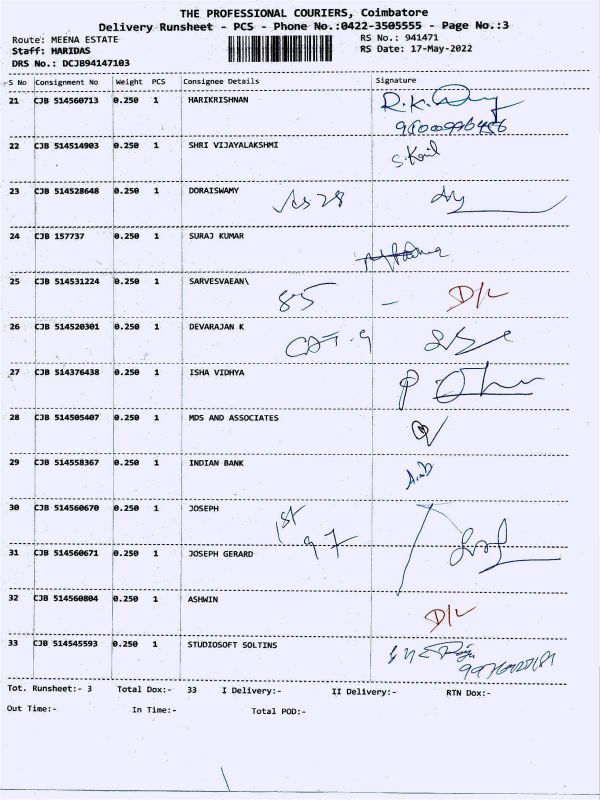 THE PROFESSIONAL COURIERS, Coimbatore
Delivery Runsheet - PCS - Phone No.:0422-3505555 - Page No.:3
Route: MEENA ESTATE RS No.: 941471
Staff: HARIDAS RS Date: 17-May-2022
DRS No.: DCJB94147103
S No Consignment No Weight PCS Consignee Details Signature
21 CJB 514560713 0.250 1 HARIKRISHNAN R.K.
22 CJB 514514903 0.250 1 SHRI VIJAYALAKSHMI
23 CJB 514528648 0.250 1 DORAISWAMY
24 CJB 157737 0.250 1 SURAJ KUMAR
25 CJB 514531224 0.250 1 SARVESVAEAN\ 85 - D/L
26 CJB 514520301 0.250 1 DEVARAJAN K
27 CJB 514376438 0.250 1 ISHA VIDHYA
28 CJB 514505407 0.250 1 MDS AND ASSOCIATES
29 CJB 514558367 0.250 1 INDIAN BANK
30 CJB 514560670 0.250 1 JOSEPH 1st
31 CJB 514560671 0.250 1 JOSEPH GERARD 97
32 CJB 514560804 0.250 1 ASHWIN D/L
33 CJB 514545593 0.250 1 STUDIOSOFT SOLTINS
Tot. Runsheet:- 3 Total Dox:- 33 I Delivery:- II Delivery:- RTN Dox:-
Out Time:- In Time:- Total POD:-